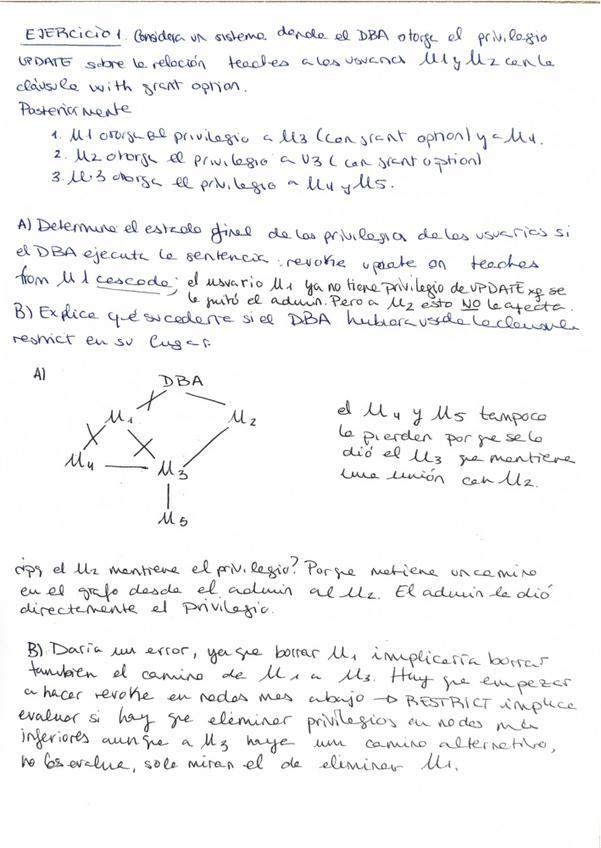 EJERCICIO 1. Considera un sistema donde el DBA otorga el privilegio
UPDATE sobre la relación teaches a los usuarios U1 y U2 con la
cláusula with grant option.
Posteriormente
1. U1 otorga el privilegio a U3 (con grant option) y a U4.
2. U2 otorga el privilegio a U3 (con grant option)
3. U3 otorga el privilegio a U4 y U5.
A) Determine el estado final de los privilegios de los usuarios si
el DBA ejecuta la sentencia: revoke update on teaches
from U1 cascade; el usuario U1 ya no tiene privilegio de UPDATE xq se
le quitó el admin. Pero a U2 esto NO le afecta.
B) Explica qué sucedería si el DBA hubiera usado la cláusula
restrict en su lugar.
A)
DBA
U1 U2
U4 U3
U5
el U4 y U5 tampoco
lo pierden porque se lo
dió el U3 que mantiene
una unión con U2.
¿pq el U2 mantiene el privilegio? Porque metiene un camino
en el grafo desde el admin al U2. El admin le dió
directamente el privilegio.
B) Daría un error, ya que borrar U1 implicaría borrar
también el camino de U1 a U3. Hay que empezar
a hacer revoke en nodos mas abajo → RESTRICT implica
evaluar si hay que eliminar privilegios en nodos más
inferiores aunque a U3 haya un camino alternativo,
no los evalua, solo miran el de eliminar U1.